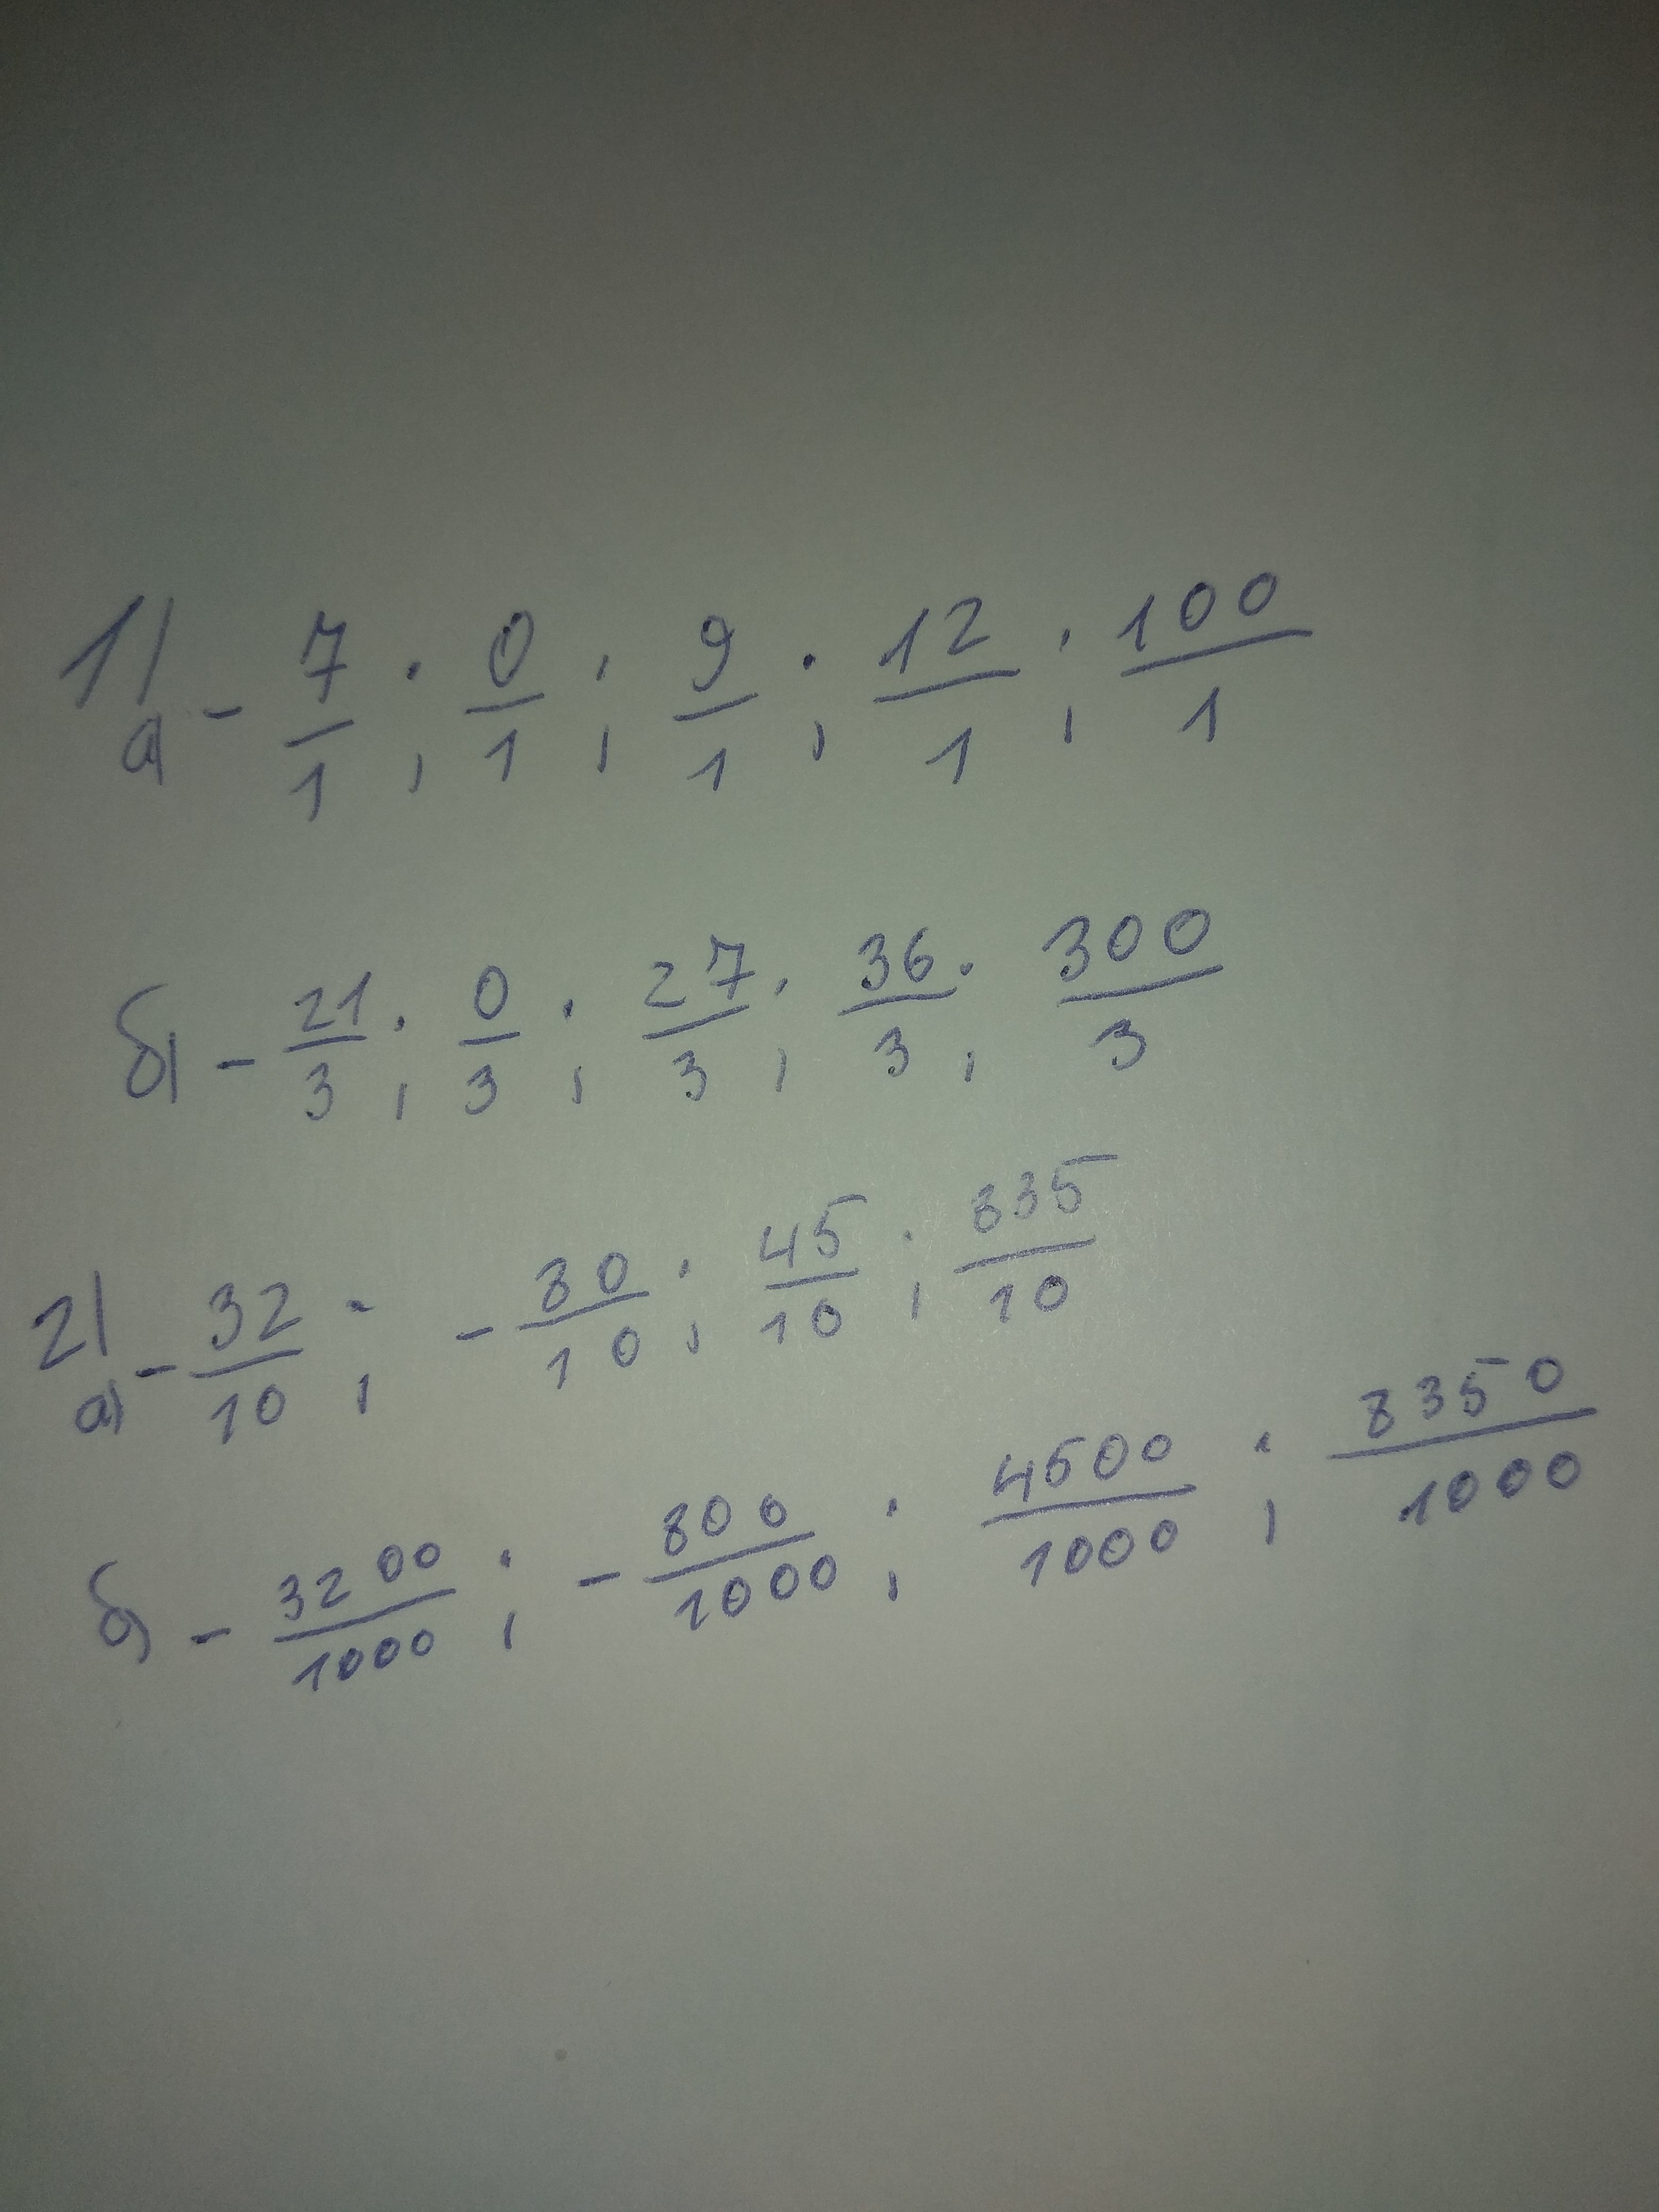 1) а) - 7/1 ; 0/1 ; 9/1 ; 12/1 ; 100/1
б) - 21/3 ; 0/3 ; 27/3 ; 36/3 ; 300/3
2) а) - 32/10 ; - 80/10 ; 45/10 ; 835/10
б) - 3200/1000 ; - 800/1000 ; 4500/1000 ; 8350/1000